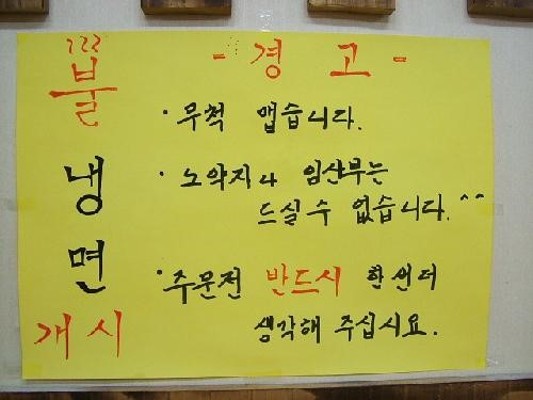 불냉면
개시
- 경고 -
· 무척 맵습니다.
· 노약자나 임산부는
드실수 없습니다.^^
· 주문전 반드시 한번더
생각해 주십시요.